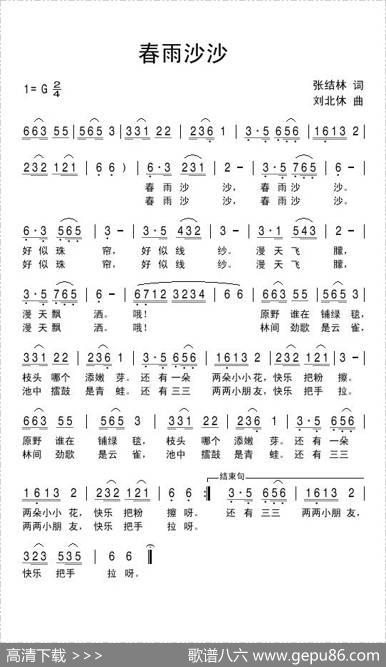 春雨沙沙
1=G 2/4
张结林 词
刘北休 曲
663 55 | 565 3 | 331 22 | 236 1 | 3·5 656 | 1613 2 |
232 121 | 6 6 ) | 6·3 231 | 2 - | 3·5 765 | 6 - |
春雨沙沙， 春雨沙沙。
春雨沙沙， 春雨沙沙。
6·3 565 | 3 - | 3·5 432 | 3 - | 3·1 543 | 2 - |
好似珠帘， 好似线纱。 漫天飞朦，
好似珠帘， 好似线纱。 漫天飞朦，
3·5 765 | 6 - | 6712 3234 | 6 6 | 663 55 | 565 3 |
漫天飘洒。 哦！ 原野谁在铺绿毯，
漫天飘洒。 哦！ 林间劲歌是云雀，
331 22 | 236 1 | 3·5 656 | 1613 2 | 232 121 | 6 6 |
枝头哪个添嫩芽。还有一朵 两朵小小花，快乐把粉擦。
池中擂鼓是青蛙。还有三三 两两小朋友，快乐把手拉。
663 55 | 565 3 | 331 22 | 236 1 | 3·5 656 |
原野谁在铺绿毯， 枝头哪个添嫩芽。还有一朵
林间劲歌是云雀， 池中擂鼓是青蛙。还有三三
结束句
1613 2 | 232 121 | 6 6 :‖ 3·5 656 | 1613 2 |
两朵小小花，快乐把粉擦呀。 还有三三 两两小朋友，
两两小朋友，快乐把手拉呀。
323 535 | 6 6 ‖
快乐把手拉呀。
高清下载 >>>
歌谱八六 www.gepu86.com